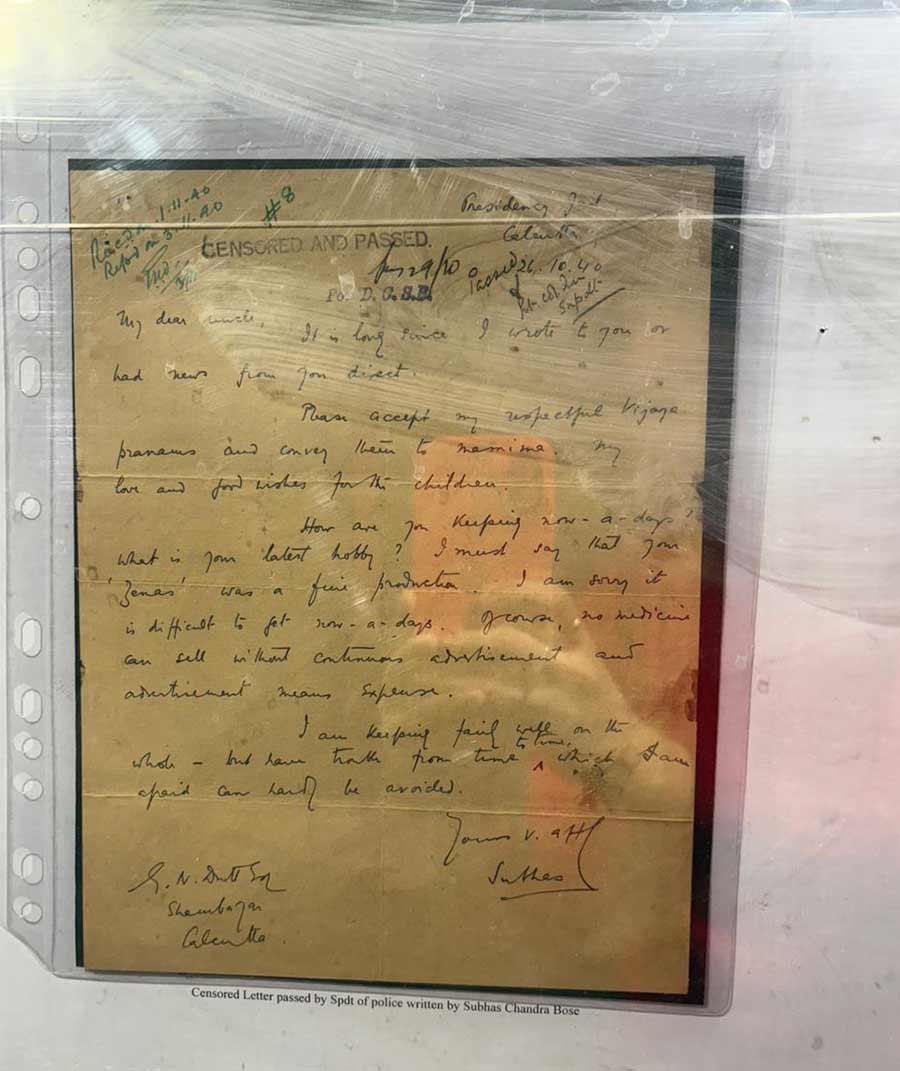 Recd on 1.11.40
Repd on 3.11.40
#8
CENSORED AND PASSED.
29/10
For D. C. S.B.
Presidency Jail
Calcutta
Passed 26.10.40
Supdt
My dear uncle,
It is long since I wrote to you or
had news from you direct.
Please accept my respectful Vijaya
pranams and convey them to mamima. My
love and good wishes for the children.
How are you keeping now-a-days?
What is your latest hobby? I must say that your
'Zenas' was a fine production. I am sorry it
is difficult to get now-a-days. Of course, no medicine
can sell without continuous advertisement and
advertisement means expense.
I am keeping fairly well on the
whole - but have trouble from time to time, which I am
afraid can hardly be avoided.
Yours v. affly
Subhas
G. N. Dutt Esq
Shambazar
Calcutta.
Censored Letter passed by Spdt of police written by Subhas Chandra Bose